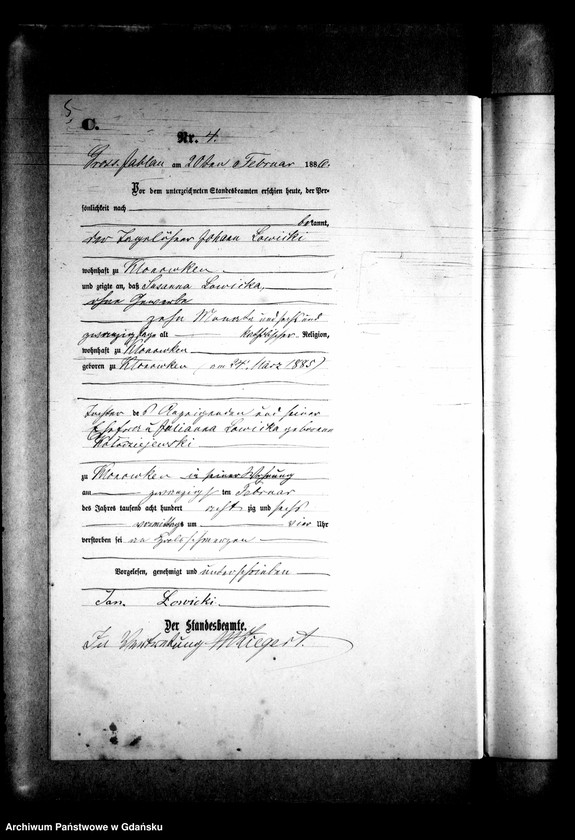 5
C.
Nr. 4.
Gross Jablau am 20ten Februar 1886.
Vor dem unterzeichneten Standesbeamten erschien heute, der Per-
sönlichkeit nach
bekannt,
der Tagelöhner Johann Lowicki
wohnhaft zu Klonowken
und zeigte an, daß Susanna Lowicka,
ohne Gewerbe
zehn Monate und sechs und
zwanzig Tage alt katholischer Religion,
wohnhaft zu Klonowken
geboren zu Klonowken (am 24. März 1885)
Tochter des Anzeigenden und seiner
Ehefrau Julianna Lowicka geborene
Kołodziejewski
zu Klonowken in seiner Wohnung
am zwanzigsten Februar
des Jahres tausend acht hundert acht zig und sechs
vormittags um vier Uhr
verstorben sei an Halsschmerzen
Vorgelesen, genehmigt und unterschrieben
Jan Lowicki.
Der Standesbeamte.
In Vertretung Wiegert.
Archiwum Państwowe w Gdańsku